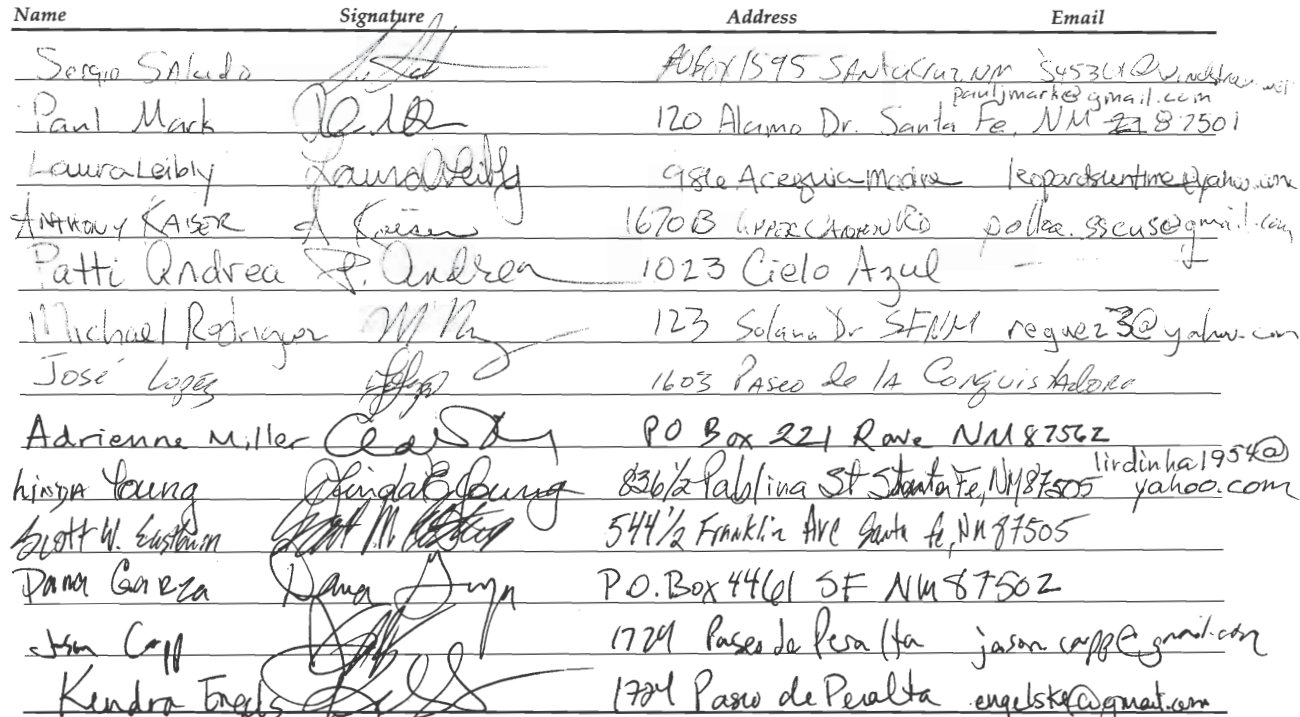 Name Signature Address Email
Sergio Salcido PO Box 1595 Santa Cruz NM
pauljmark@gmail.com
Paul Mark 120 Alamo Dr. Santa Fe, NM 87501
Laura Leibly Laura Leibly 986 Acequia Madre
Anthony Kaiser A Kaiser 1670B Upper Canyon Rd
Patti Andrea P. Andrea 1023 Cielo Azul
Michael Rodriguez 123 Solana Dr SFNM reguez3@yahoo.com
José Lopez 1603 Paseo de la Conquistadora
Adrienne Miller PO Box 221 Rowe NM 87562
lirdinha1954@
Linda Young Linda E Young 836 1/2 Pablina St Santa Fe, NM 87505 yahoo.com
Scott W. Eastburn 544 1/2 Franklin Ave Santa Fe, NM 87505
Dana Garza Dana Garza P.O. Box 4461 SF NM 87502
Jason Capp 1724 Paseo de Peralta
Kendra Engels 1724 Paseo de Peralta engelske@gmail.com